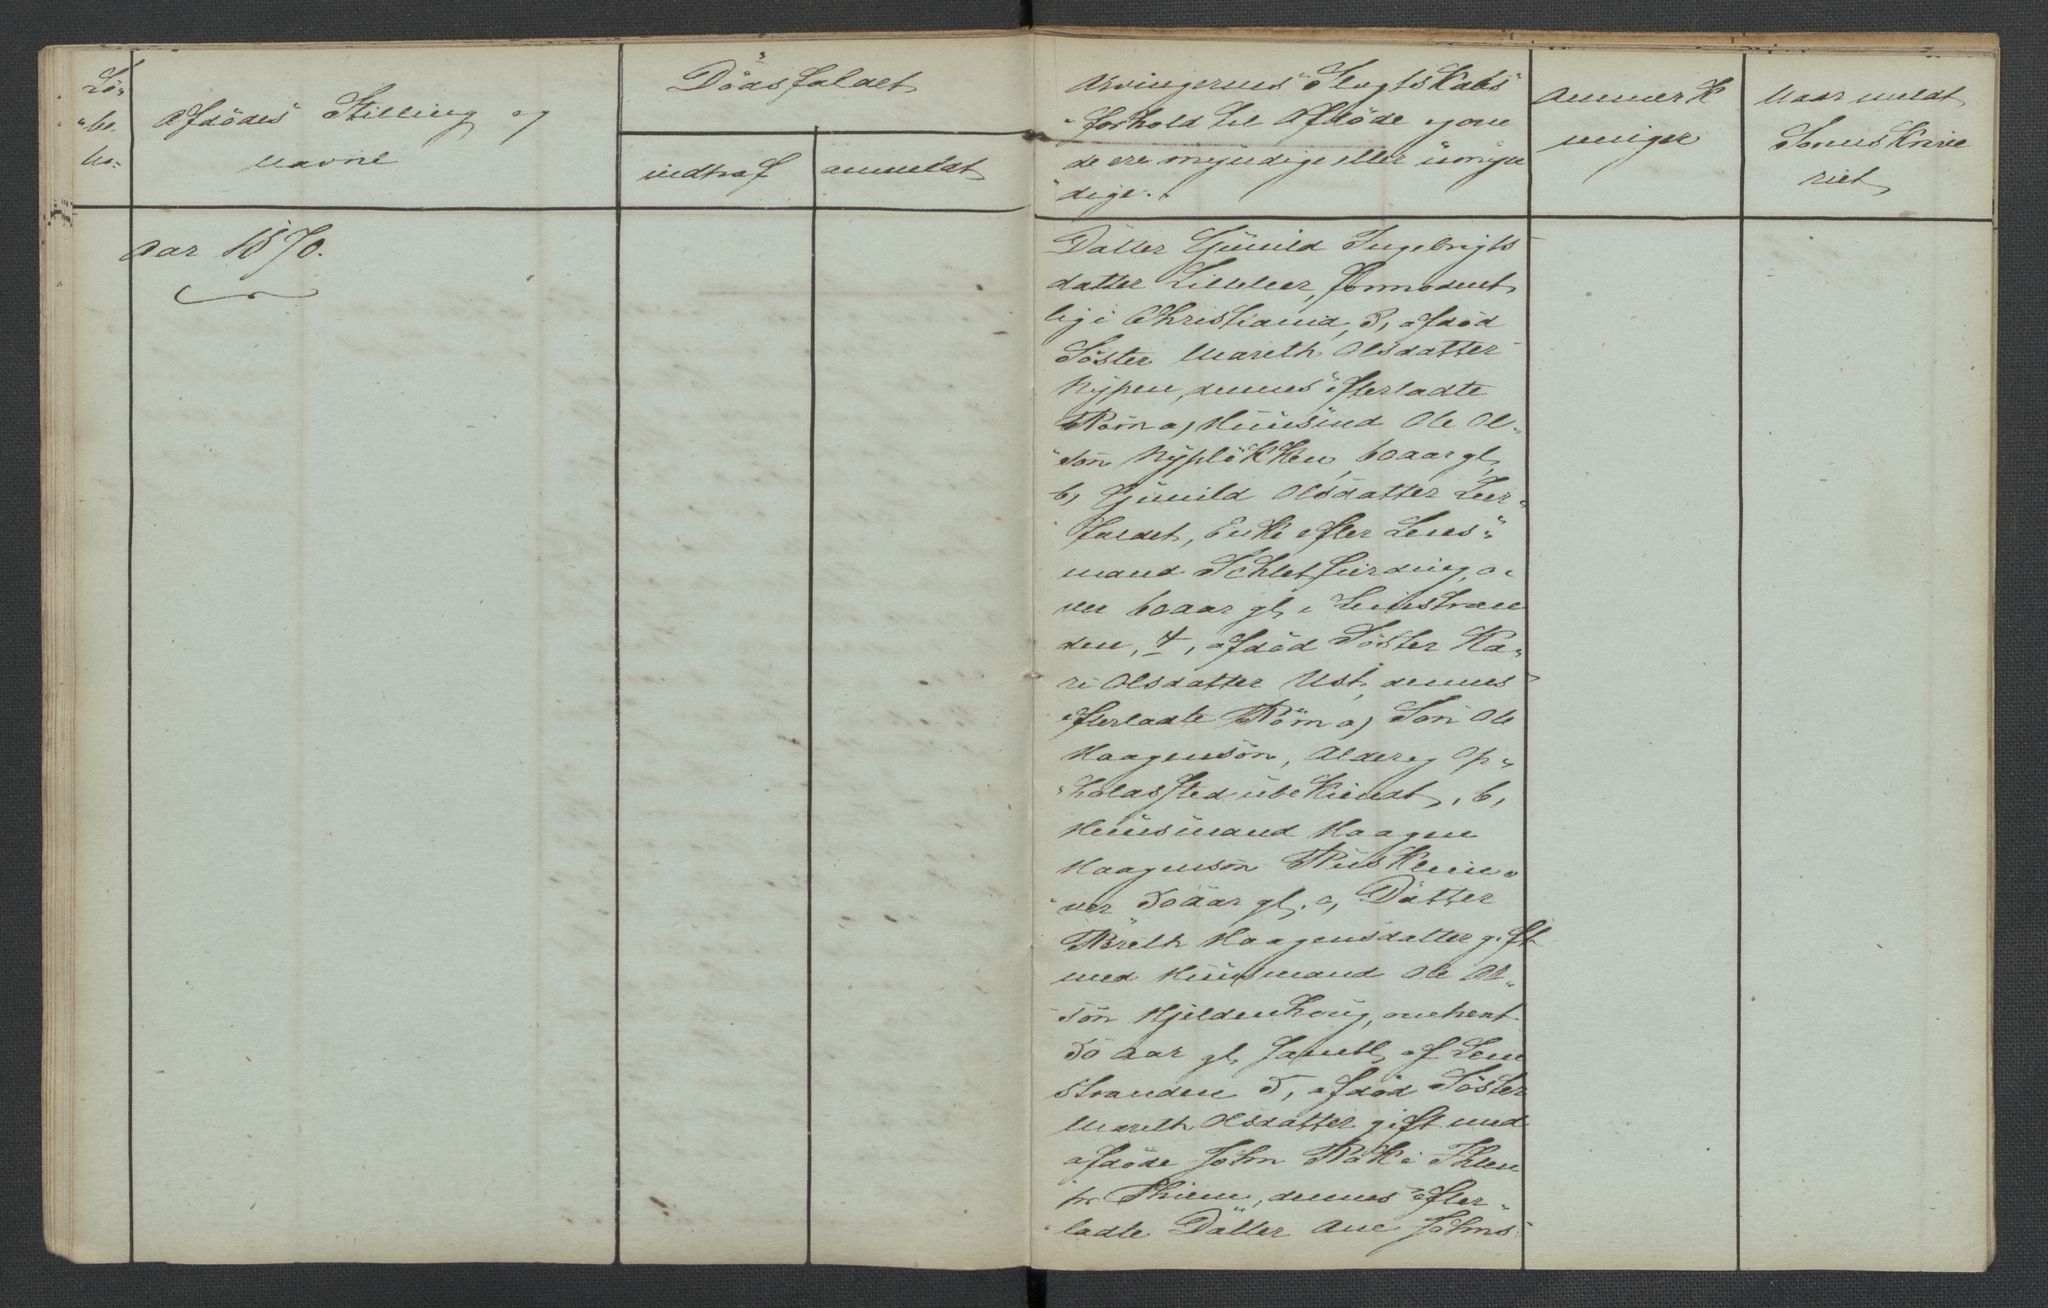 Lö-
be
No-
Afdödes Stilling og
Navne
Dödsfaldet
indtraf
anmeldt
Arvingernes Slægtskabs
forhold til Afdöde og om
de ere myndige eller umyn
dige.
Anmærk
ninger
Naar meldt
Sorenskrive
riet
Aar 1870.
Datter Gunild Ingebrigts
datter Lilleleer, formodent
lig i Christiania, 3, afdöd
Söster Mareth Olsdatter
Nypen, dennes efterladte
Börn a, Huusmd Ole Ol-
sön Nyplökken, 60 aar gl,
b, Gunild Olsdatter Leer-
faldet, Enke efter Lens-
mand Schletfierding, o-
ver 60 aar gl, i Leinstran
den, 4, afdöd Söster Ka-
ri Olsdatter Ust, dennes
efterladte Börn a, Sön Ole
Haagensön, Alder og Op-
holdssted ubekiendt, b,
Huusmand Haagen
Haagensön Busklein o-
ver 50 aar gl. c, Datter
Bereth Haagensdatter gift
med Huusmand Ole Ol-
sön Hjeldenhoug, omtrent
50 aar gl, samtl, af Lein
stranden 5, afdöd Söster
Mareth Olsdatter gift med
afdöde John Bak i Klæ
br Thiem, dennes efter-
ladte Datter Ane Johns-